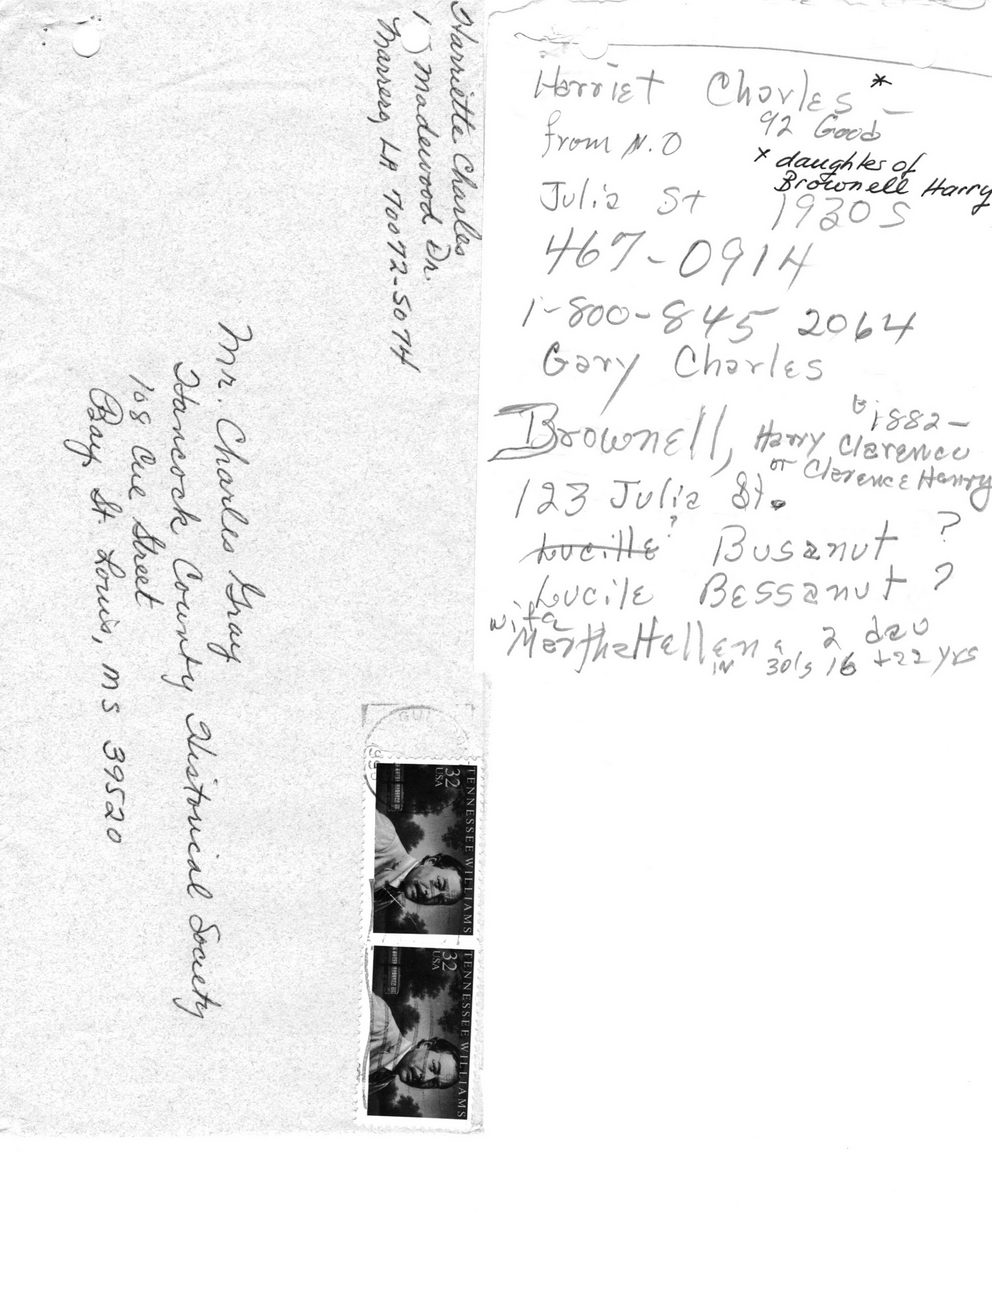 Harriette Charles
1 Madewood Dr.
Marrero, LA 70072-5074
Mr. Charles Gray
Hancock County Historical Society
108 Cue Street
Bay St. Louis, MS 39520
TENNESSEE WILLIAMS
32
USA
TENNESSEE WILLIAMS
32
USA
Harriet Charles * –
92 Good
from N.O
* daughter of
Brownell Harry
Julia St 1930s
467-0914
1-800-845 2064
Gary Charles
b 1882–
Brownell, Harry Clarence
or Clarence Henry
123 Julia St.
Lucille ? Busanut ?
Lucile Bessanut ?
wife
Martha Hellen 2 dau
IN 30's 16 + 22 yrs